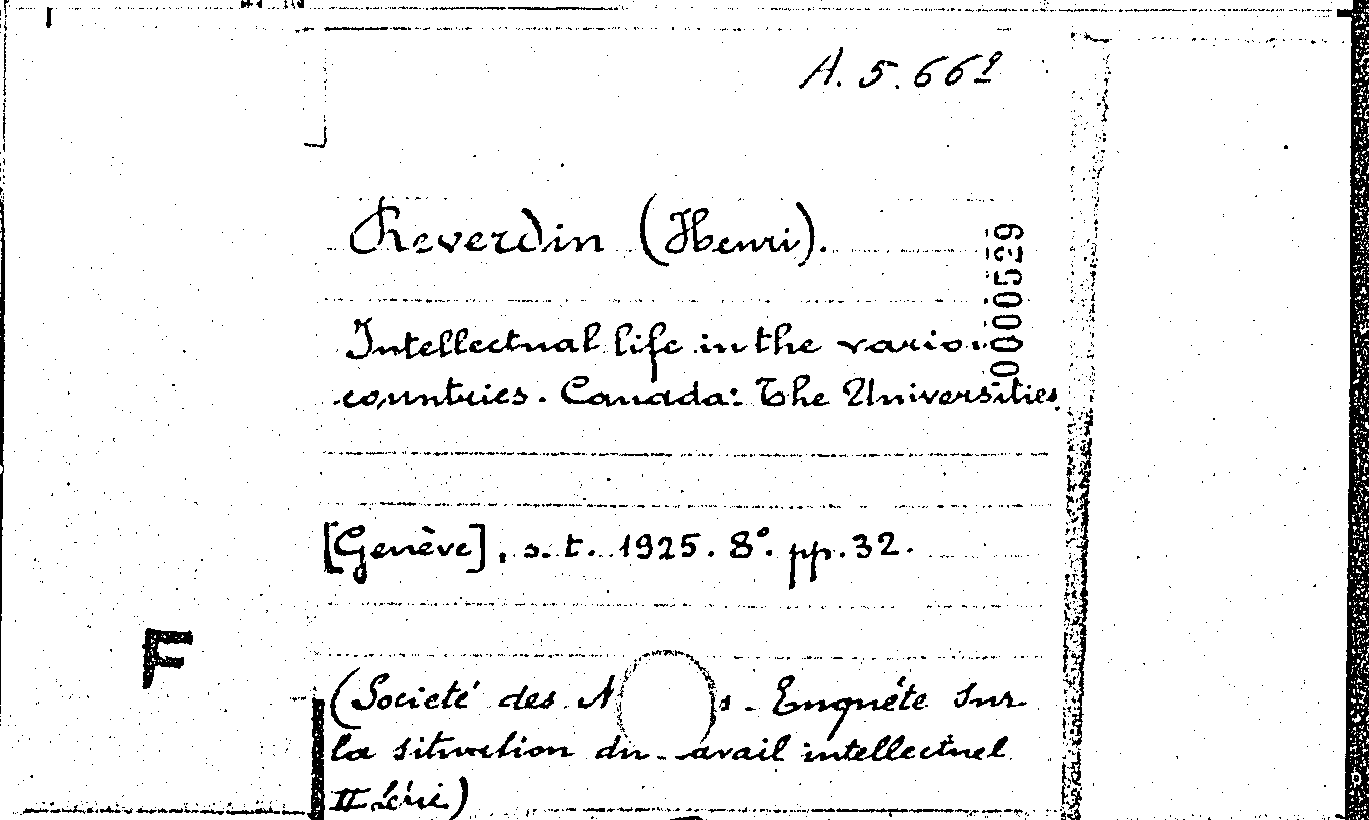 A. 5. 662
Reverdin (Henri).
0000529
Intellectual life in the
countries. Canada: The Universities
[Genève], s. t. 1925. 8°. pp. 32.
F
(Societé des - Enquête sur
la situation du intellectuel
II